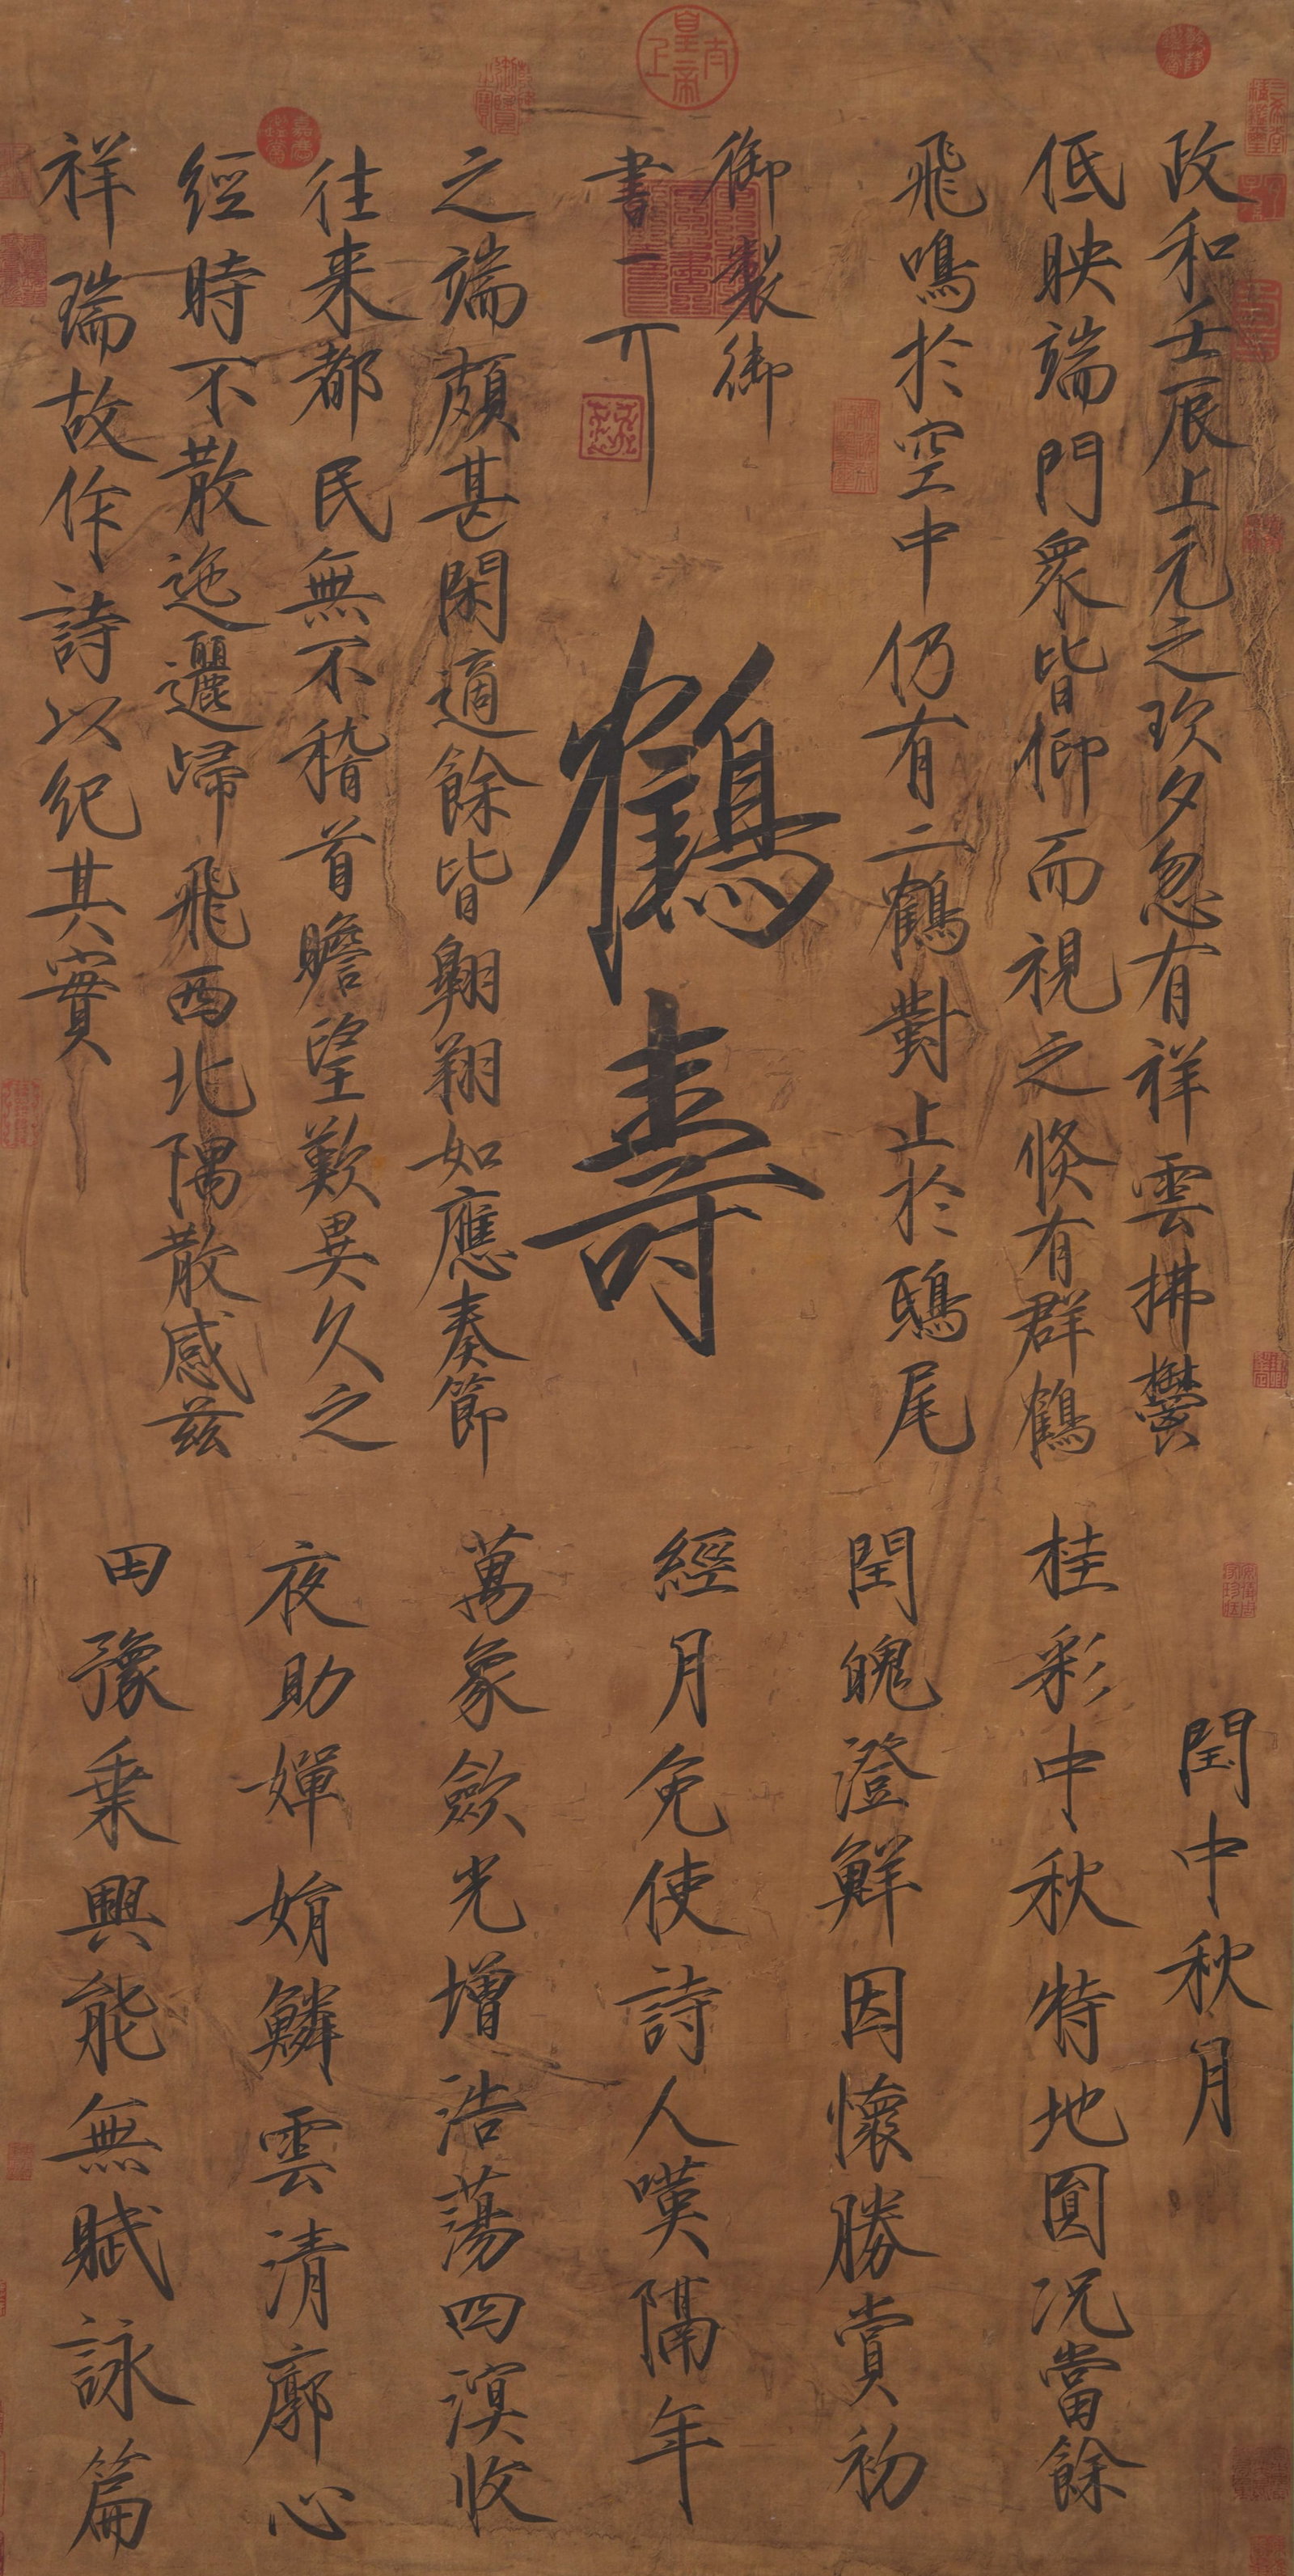 政和壬辰上元之次夕忽有祥雲拂鬱
低映端門衆皆仰而視之倏有群鶴
飛鳴於空中仍有二鶴對止於鴟尾
御製御
書
鶴壽
之端頗甚閑適餘皆翱翔如應奏節
往来都民無不稽首瞻望歎異久之
經時不散迤邐歸飛西北隅散感茲
祥瑞故作詩以紀其實
閏中秋月
桂彩中秋特地圓况當餘
閏魄澄鮮因懷勝賞初
經月免使詩人嘆隔年
萬象斂光增浩蕩四溟收
夜助嬋娟鱗雲清廓心
田豫乗興能無賦詠篇